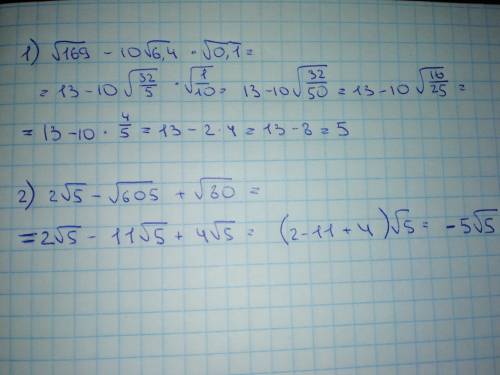 1) √169 - 10√6,4 · √0,1 =
= 13 - 10 √(32/5) · √(1/10) = 13 - 10 √(32/50) = 13 - 10 √(16/25) =
= 13 - 10 · 4/5 = 13 - 2 · 4 = 13 - 8 = 5
2) 2√5 - √605 + √80 =
= 2√5 - 11√5 + 4√5 = (2 - 11 + 4)√5 = -5√5